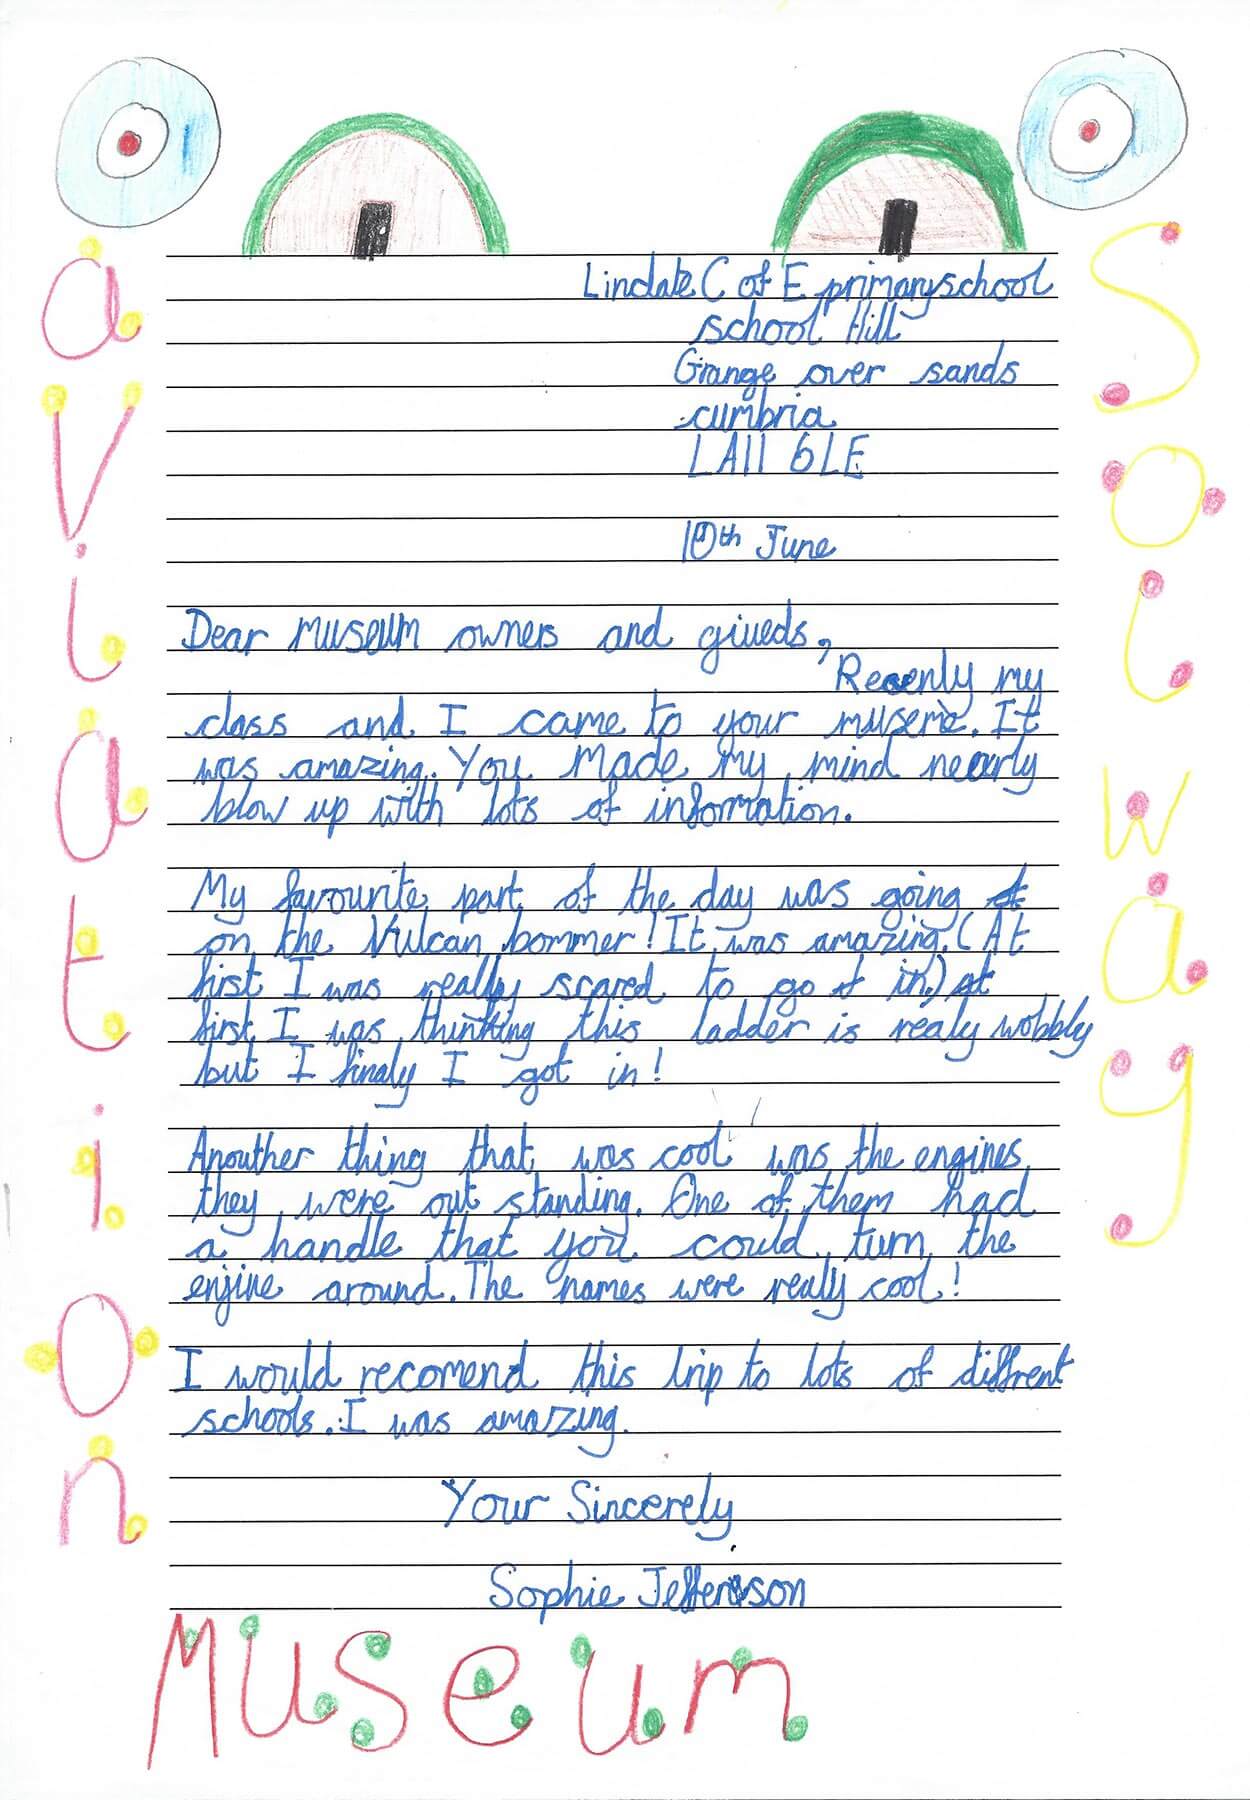 Lindale C of E primary school
school Hill
Grange over sands
cumbria
LA11 6LE
10th June
Dear museum owners and giueds,
Recenly my
class and I came to your museme. It
was amazing. You made my mind nearly
blow up with lots of information.
My favourite part of the day was going
on the Vulcan bommer! It was amazing. (At
first I was really scared to go in.)
first I was thinking this ladder is realy wobbly
but I finaly I got in!
Anouther thing that was cool was the engines
they were out standing. One of them had
a handle that you could turn the
enjine around. The names were really cool!
I would recomend this trip to lots of diffrent
schools. I was amazing.
Your Sincerely
Sophie Jefferson
aviation
Solway
Museum